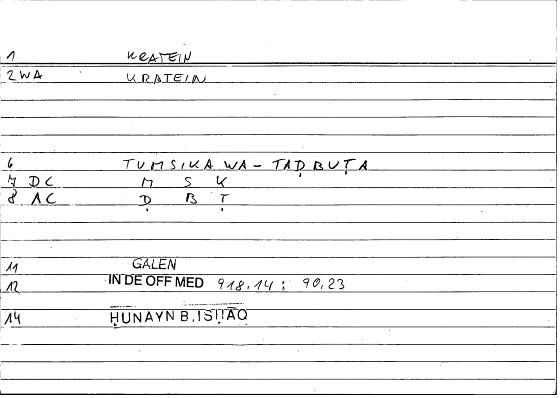 1 KRATEIN
2 WA KRATEIN
6 TUMSIKA WA-TAḌBUṬA
7 DC M S K
8 AC Ḍ B Ṭ
11 GALEN
12 IN DE OFF MED 918.14 ; 90,23
14 ḤUNAYN B. ISḤĀQ